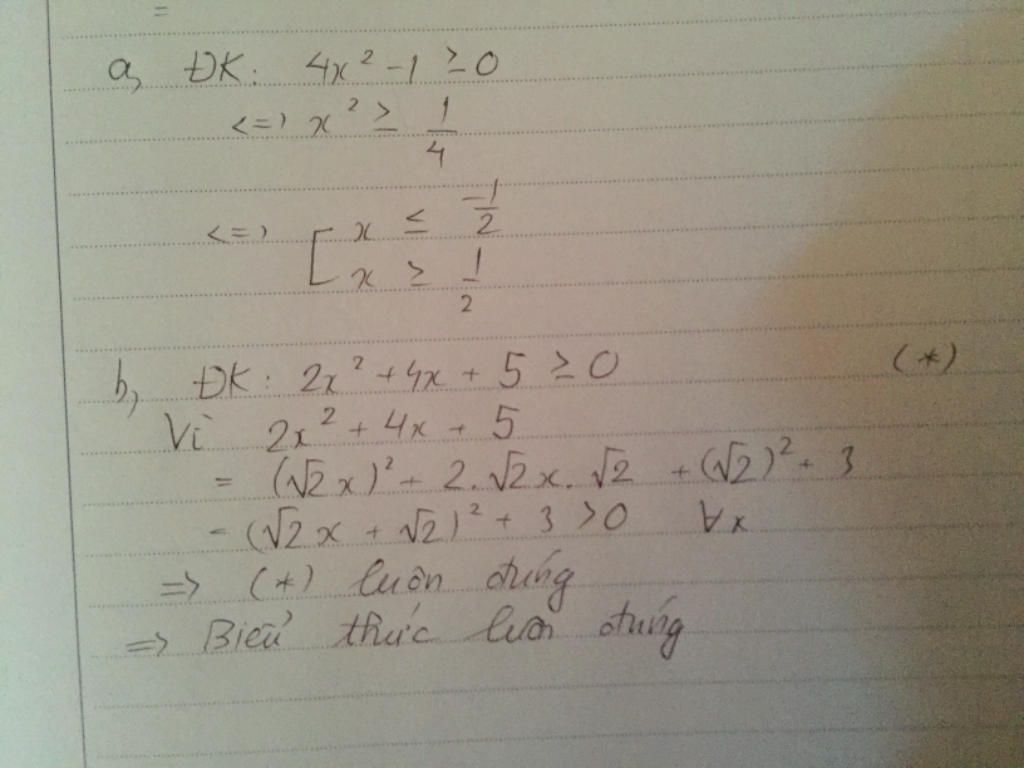 =
a, ĐK: 4x² - 1 ≥ 0
<=> x² ≥ 1/4
<=> [ x ≤ -1/2
x ≥ 1/2
b, ĐK: 2x² + 4x + 5 ≥ 0 (*)
Vì 2x² + 4x + 5
= (√2x)² + 2.√2x.√2 + (√2)² + 3
= (√2x + √2)² + 3 > 0 ∀x
=> (*) luôn đúng
=> Biểu thức luôn đúng